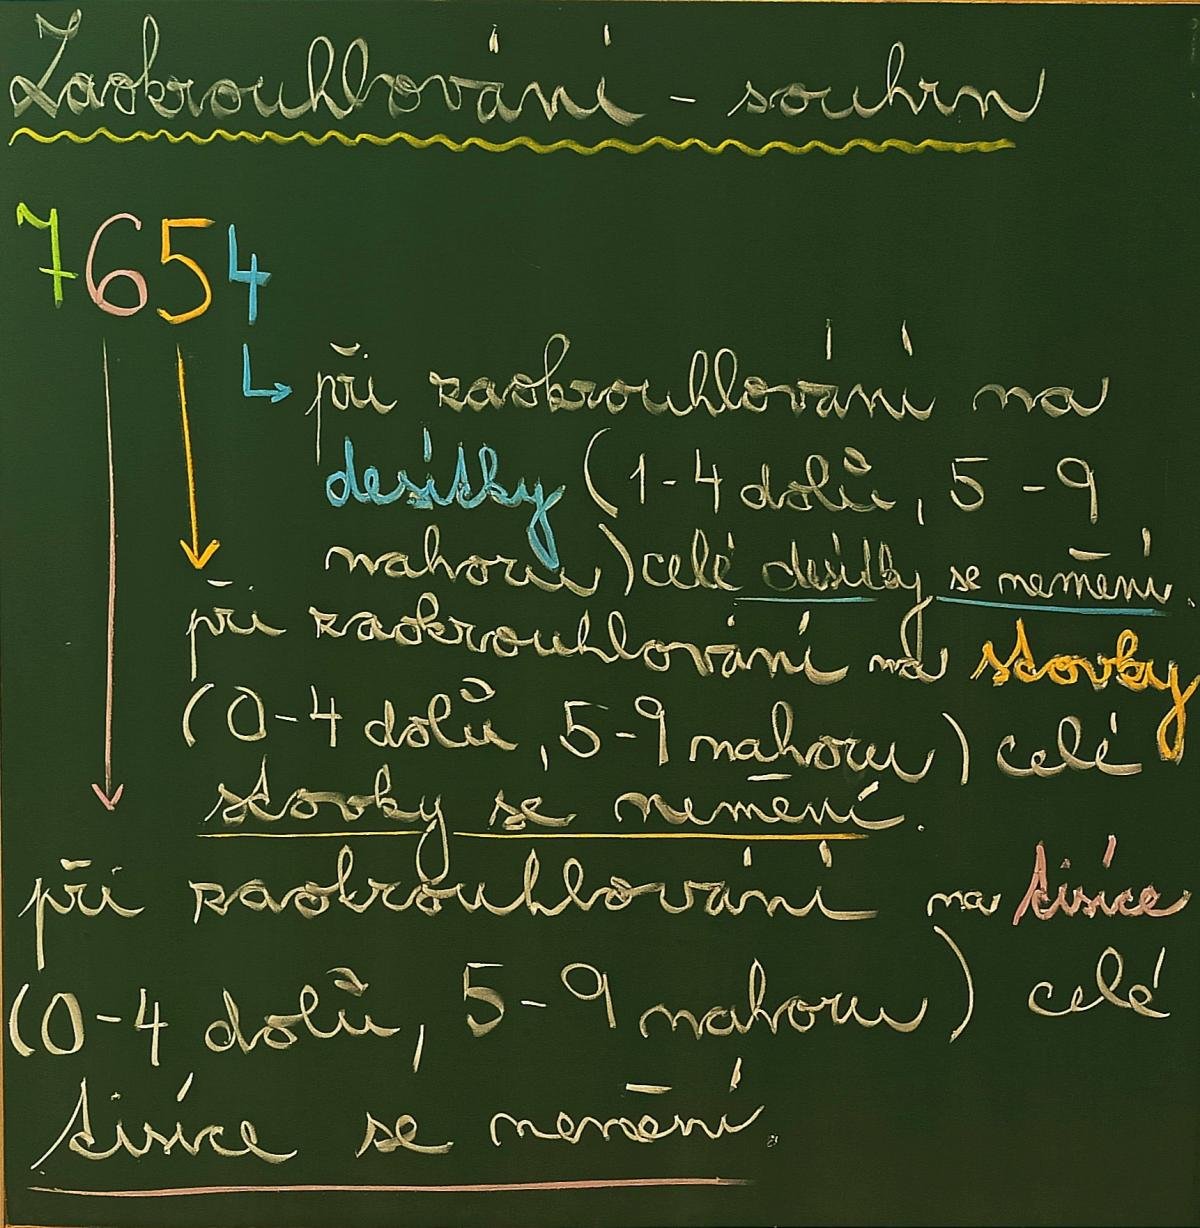 Zaokrouhlování - souhrn
7654
při zaokrouhlování na
desítky (1-4 dolů, 5-9
nahoru) celé desítky se nemění.
při zaokrouhlování na stovky
(0-4 dolů, 5-9 nahoru) celé
stovky se nemění.
při zaokrouhlování na tisíce
(0-4 dolů, 5-9 nahoru) celé
tisíce se nemění.